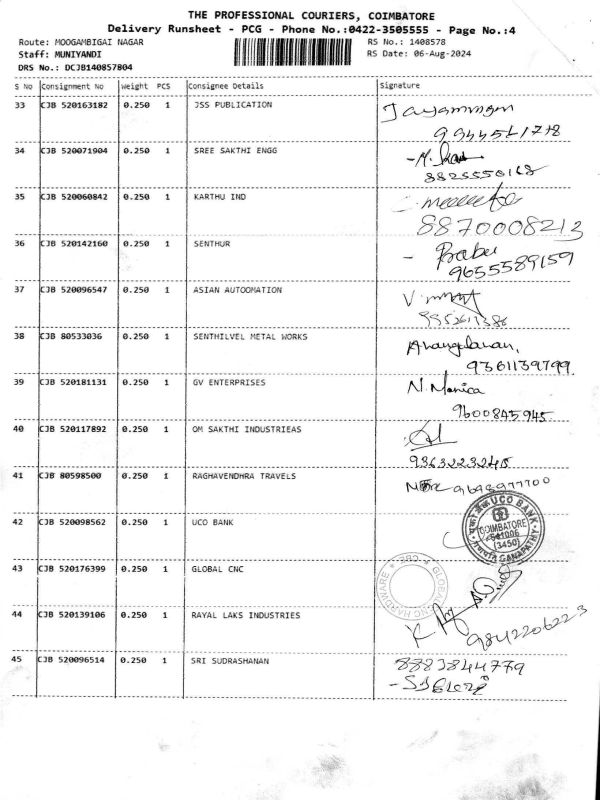 THE PROFESSIONAL COURIERS, COIMBATORE
Delivery Runsheet - PCG - Phone No.:0422-3505555 - Page No.:4
Route: MOOGAMBIGAI NAGAR RS No.: 1408578
Staff: MUNIYANDI RS Date: 06-Aug-2024
DRS No.: DCJB140857804
S No Consignment No Weight PCS Consignee Details Signature
33 CJB 520163182 0.250 1 JSS PUBLICATION
34 CJB 520071904 0.250 1 SREE SAKTHI ENGG
8825550168
35 CJB 520060842 0.250 1 KARTHU IND
8870008213
36 CJB 520142160 0.250 1 SENTHUR - Babu
9655589159
37 CJB 520096547 0.250 1 ASIAN AUTOOMATION
38 CJB 80533036 0.250 1 SENTHILVEL METAL WORKS
9361139799
39 CJB 520181131 0.250 1 GV ENTERPRISES N. Monica
9600845945
40 CJB 520117892 0.250 1 OM SAKTHI INDUSTRIEAS
9363223245
41 CJB 80598500 0.250 1 RAGHAVENDHRA TRAVELS 9698977700
42 CJB 520098562 0.250 1 UCO BANK
UCO BANK
COIMBATORE
641006
(3450)
GANAPATHY
43 CJB 520176399 0.250 1 GLOBAL CNC
GLOBAL CNC HARDWARE CBE
44 CJB 520139106 0.250 1 RAYAL LAKS INDUSTRIES
9842206223
45 CJB 520096514 0.250 1 SRI SUDRASHANAN 8883844779